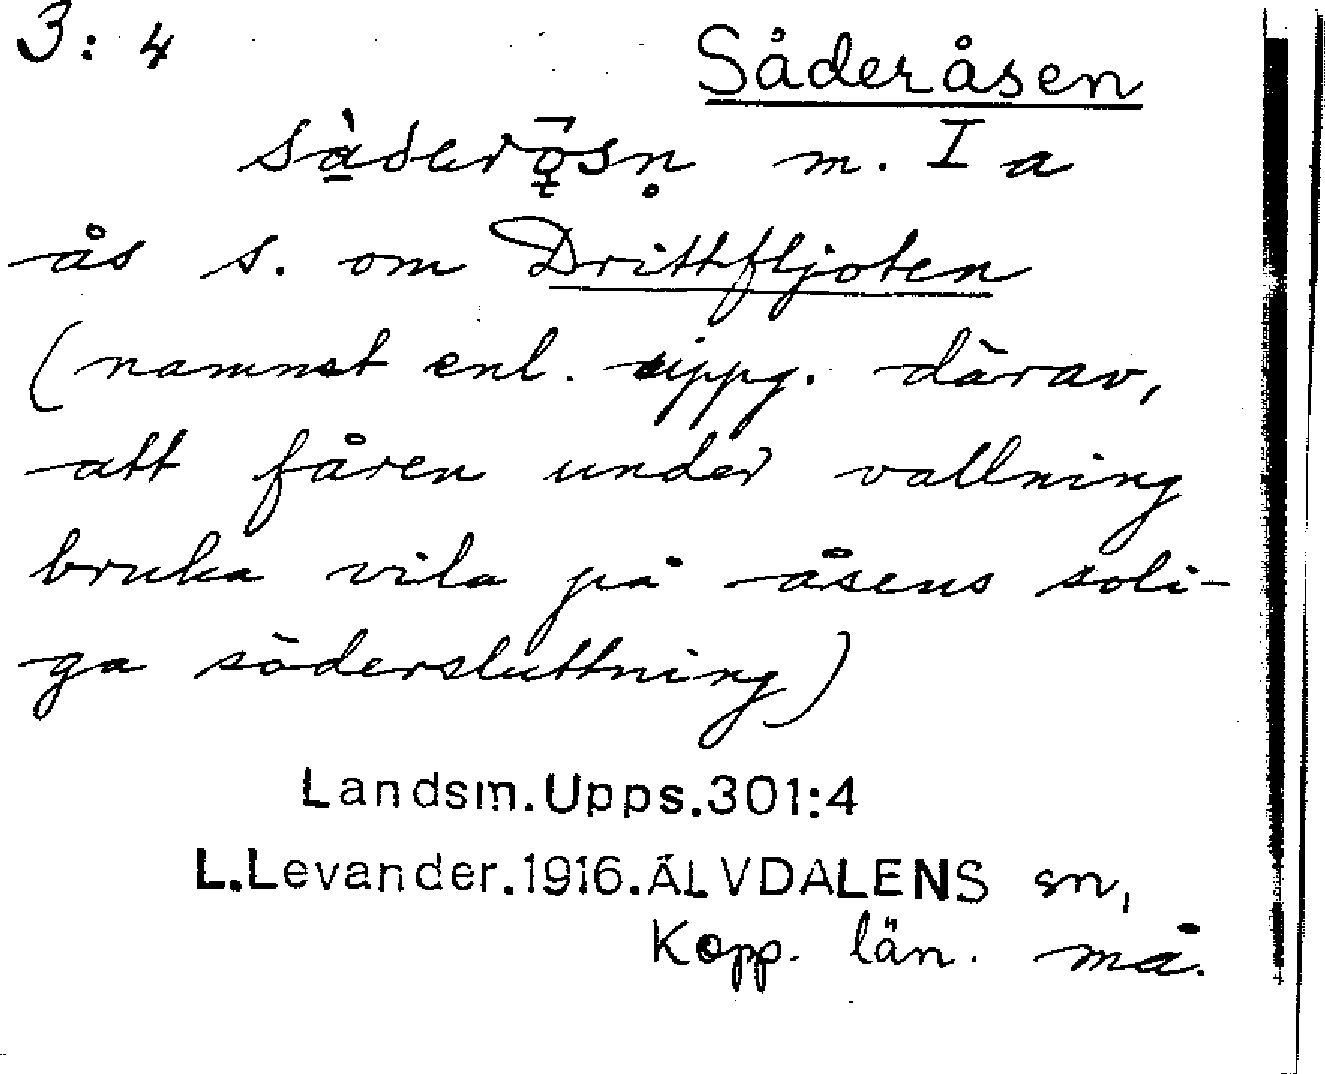 3:4
Såderåsen
m. I a
ås s. om Drittfljoten
(namnet enl. uppg. därav,
att fåren under vallning
bruka vila på åsens soli-
ga södersluttning)
Landsm.Upps.301:4
L.Levander.1916.ÄLVDALENS sn,
Kopp. län. må.